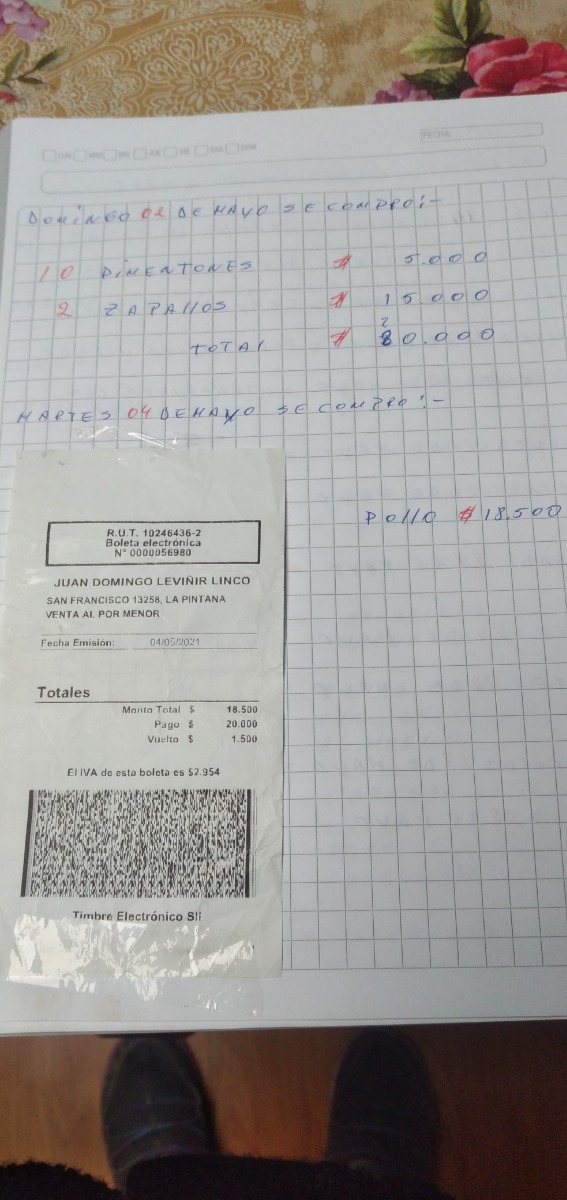 LUN MAR MIE JUE VIE SAB DOM
FECHA:
DOMINGO 02 DE MAYO SE COMPRO:-
10 PIMENTONES $ 5.000
2 ZAPALLOS $ 15.000
TOTAL $ 20.000
MARTES 04 DE MAYO SE COMPRO:-
POLLO $ 18.500
R.U.T. 10246436-2
Boleta electrónica
N° 0000056980
JUAN DOMINGO LEVIÑIR LINCO
SAN FRANCISCO 13258, LA PINTANA
VENTA AL POR MENOR
Fecha Emisión: 04/05/2021
Totales
Monto Total $ 18.500
Pago $ 20.000
Vuelto $ 1.500
El IVA de esta boleta es $2.954
Timbre Electrónico SII